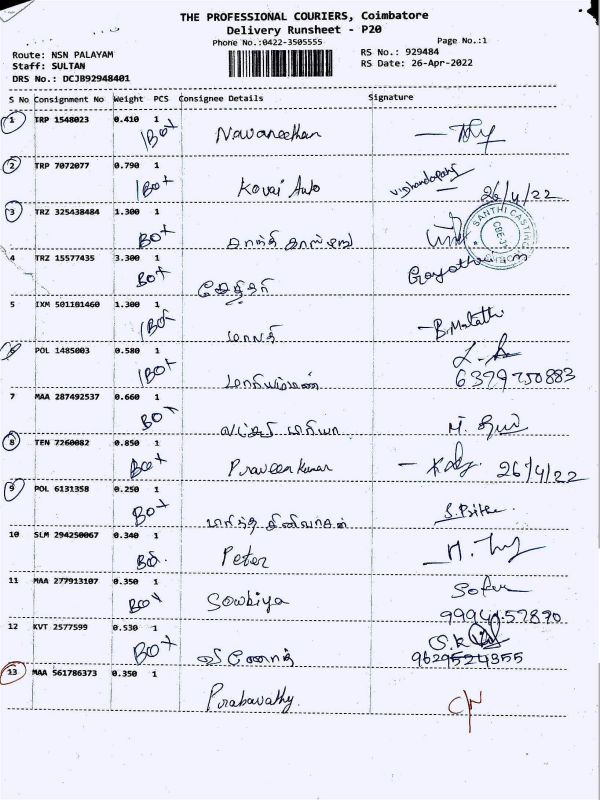 THE PROFESSIONAL COURIERS, Coimbatore
Delivery Runsheet - P20
Phone No.:0422-3505555
Page No.:1
Route: NSN PALAYAM
RS No.: 929484
Staff: SULTAN
RS Date: 26-Apr-2022
DRS No.: DCJB92948401
S No Consignment No Weight PCS Consignee Details Signature
1 TRP 1548023 0.410 1
Box Navaneethan
2 TRP 7072077 0.790 1
Box Kovai Auto 26/4/22
3 TRZ 325438484 1.300 1
SANTHI CASTING
Box
4 TRZ 15577435 3.300 1
Box
5 IXM 501101460 1.300 1
Box மாலதி B. Malathi
6 POL 1485003 0.580 1
Box 6379750883
7 MAA 287492537 0.660 1
Box
8 TEN 7260082 0.850 1
Box Praveen kumar 26/4/22
9 POL 6131358 0.250 1
Box
10 SLM 294250067 0.340 1
Box Peter
11 MAA 277913107 0.350 1
Box Sowbiya
12 KVT 2577599 0.530 1
Box 9629524355
13 MAA 561786373 0.350 1
Prabavathy